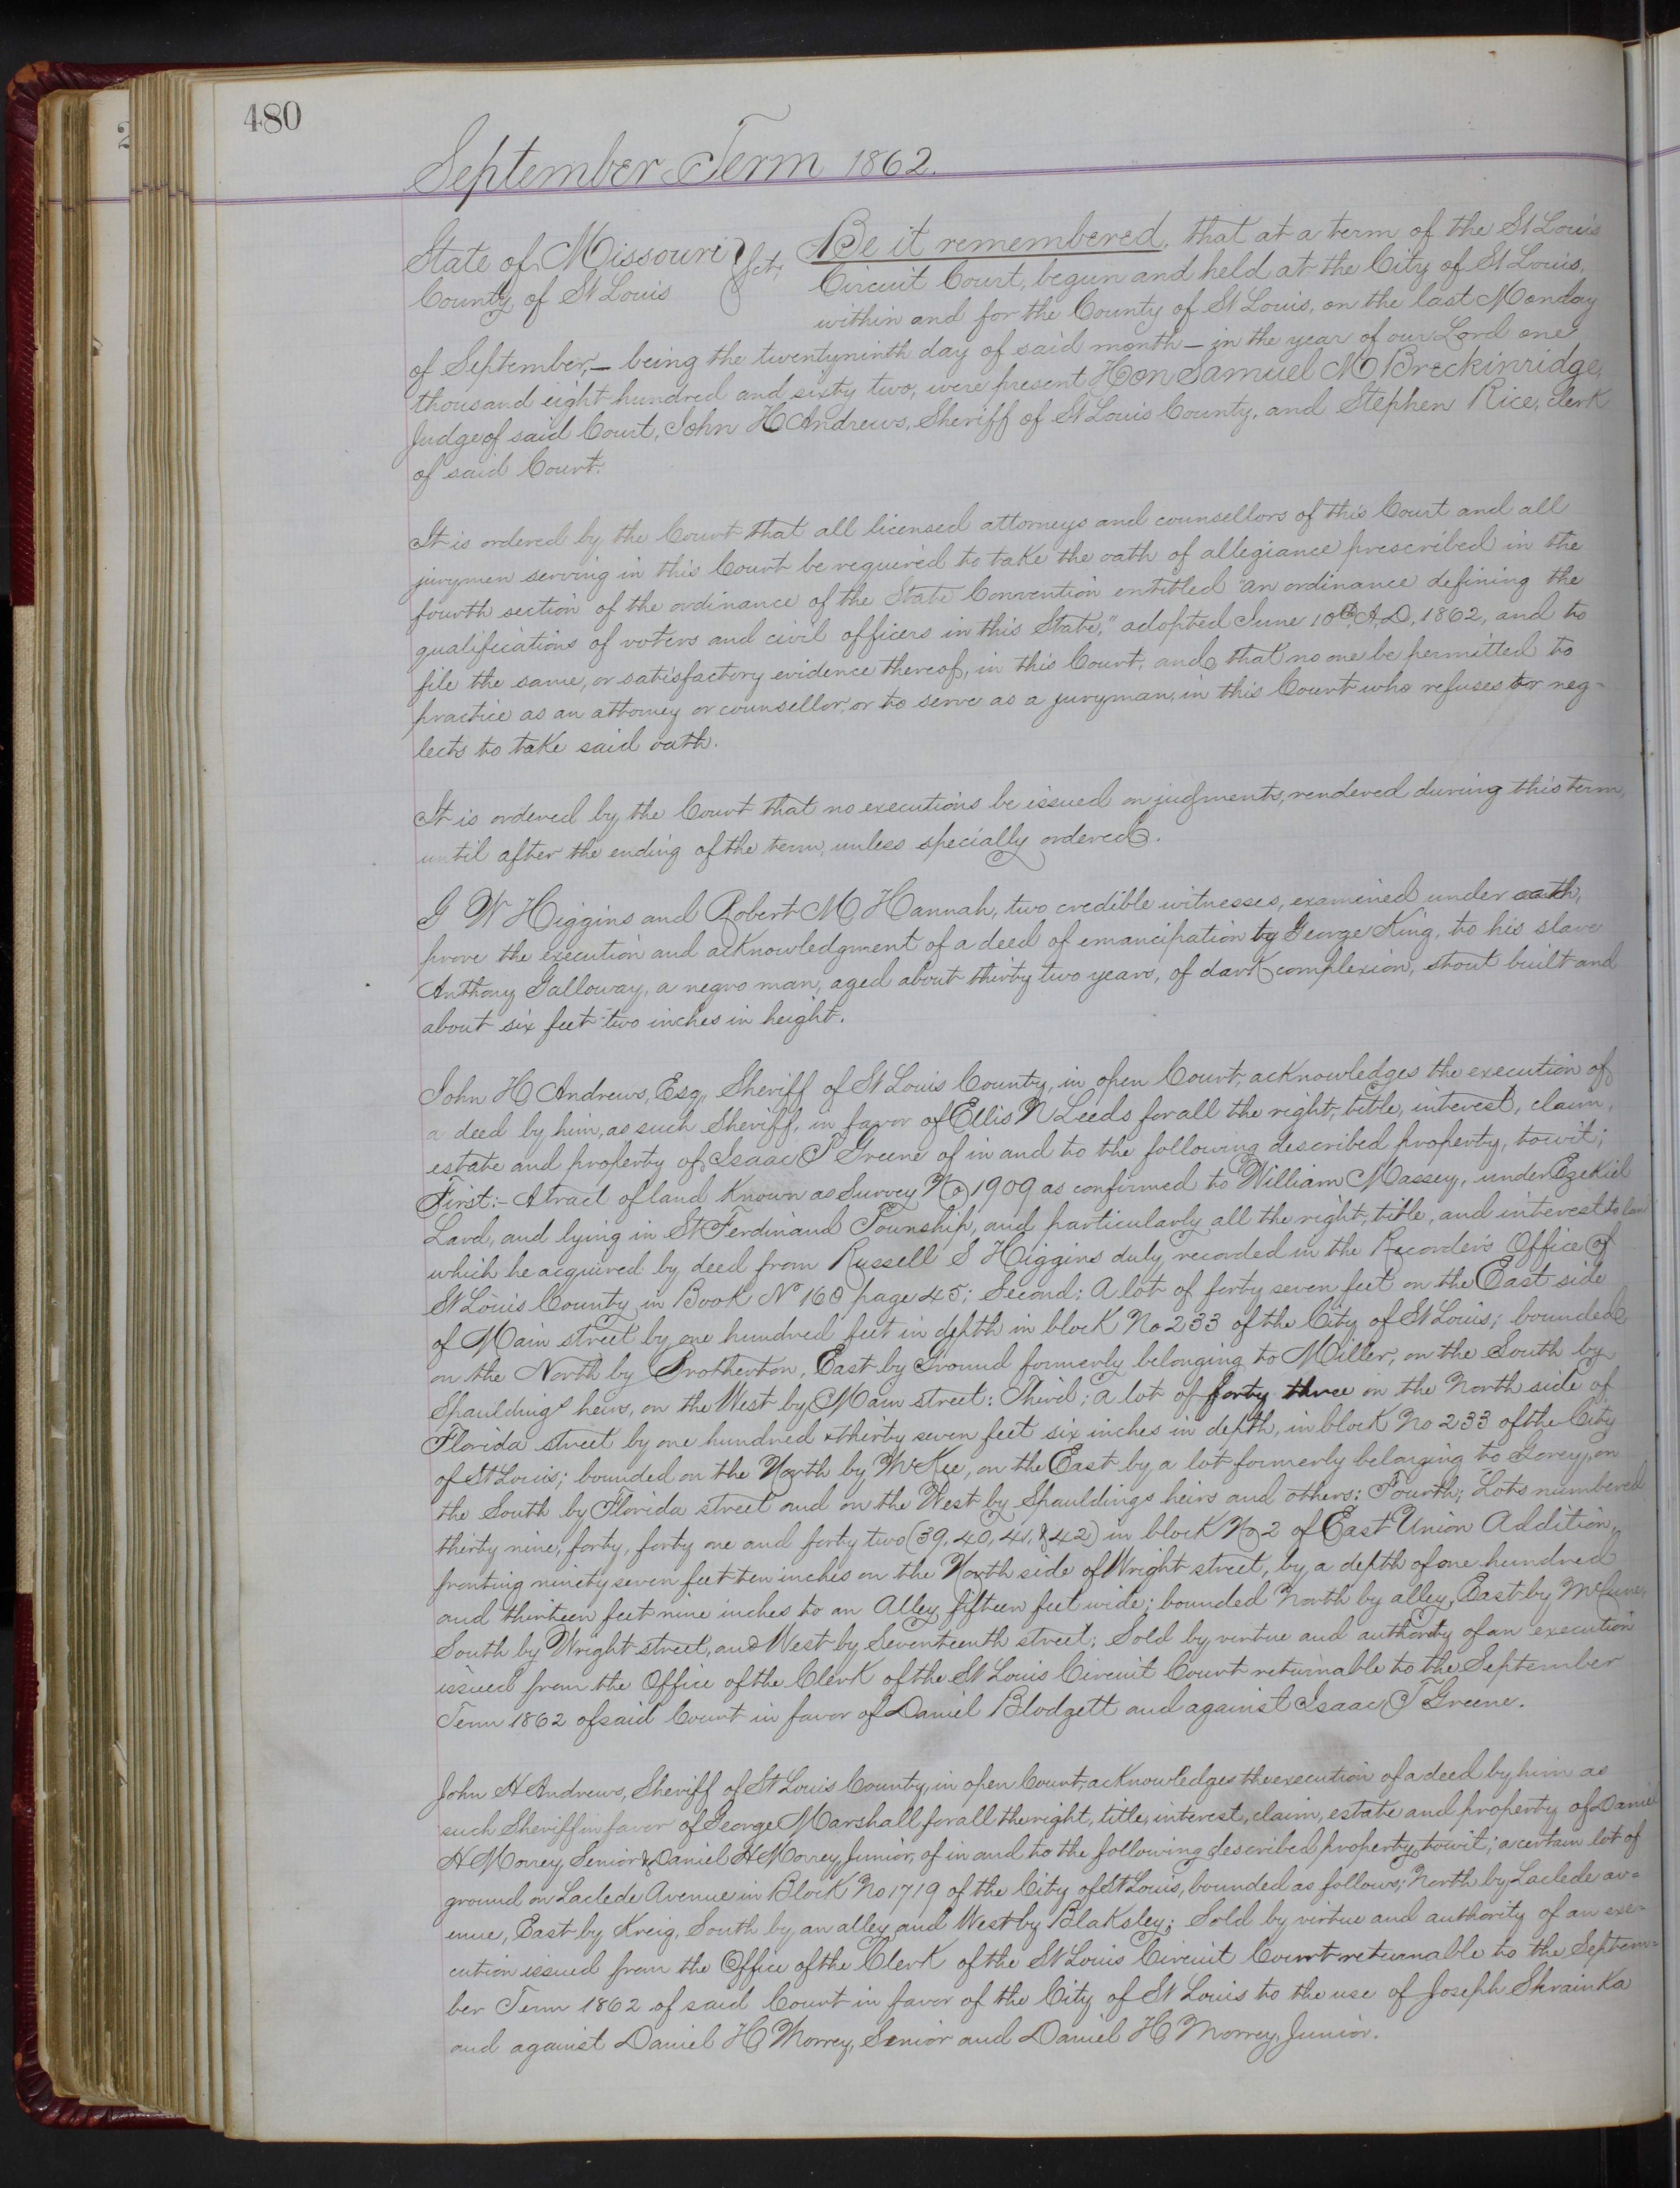 480
September Term 1862.
State of Missouri } Sct.
County of St Louis
Be it remembered, that at a term of the St Louis
Circuit Court, begun and held at the City of St Louis,
within and for the County of St Louis, on the last Monday
of September, — being the twentyninth day of said month — in the year of our Lord one
thousand eight hundred and sixty two, were present Hon Samuel M Breckinridge,
Judge of said Court, John H Andrews, Sheriff of St Louis County, and Stephen Rice, clerk
of said Court.
It is ordered by the Court that all licensed attorneys and counsellors of this Court and all
jurymen serving in this Court be required to take the oath of allegiance prescribed in the
fourth section of the ordinance of the State Convention entitled "an ordinance defining the
qualifications of voters and civil officers in this State," adopted June 10th A,D, 1862, and to
file the same, or satisfactory evidence thereof, in this Court, and that no one be permitted to
practice as an attorney or counsellor, or to serve as a juryman, in this Court who refuses or neg-
lects to take said oath.
It is ordered by the Court that no executions be issued on judgments, rendered during this term,
until after the ending of the term, unless specially ordered.
G W Higgins and Robert M Hannah, two credible witnesses, examined under oath,
prove the execution and acknowledgment of a deed of emancipation by George King, to his slave
Anthony Galloway, a negro man, aged about thirty two years, of dark complexion, stout built and
about six feet two inches in height.
John H Andrews, Esq, Sheriff of St Louis County, in open Court, acknowledges the execution of
a deed by him, as such Sheriff, in favor of Ellis N Leeds for all the right, title, interest, claim,
estate and property of Isaac T Greene of in and to the following described property, towit;
First:- A tract of land known as Survey No 1909 as confirmed to William Massey, under Ezekiel
Lard, and lying in St Ferdinand Township, and particularly all the right, title, and interest to land
which he acquired by deed from Russell S Higgins duly recorded in the Recorder's Office of
St Louis County in Book No 160 page 45; Second: A lot of forty seven feet on the East side
of Main street by one hundred feet in depth in block No 233 of the City of St Louis; bounded
on the North by Brotherton, East by Ground formerly belonging to Miller, on the South by
Spaulding's heirs, on the West by Main street: Third; a lot of forty three on the North side of
Florida street by one hundred & thirty seven feet six inches in depth, in block No 233 of the City
of St Louis; bounded on the North by McKee, on the East by a lot formerly belonging to Gorey, on
the South by Florida street and on the West by Spauldings heirs and others: Fourth; Lots numbered
thirty nine, forty, forty one and forty two (39, 40, 41, & 42) in block No 2 of East Union Addition,
fronting ninety seven feet ten inches on the North side of Wright street, by a depth of one hundred
and thirteen feet nine inches to an Alley fifteen feet wide; bounded North by alley, East by McCune,
South by Wright street, and West by Seventeenth street; Sold by virtue and authority of an execution
issued from the Office of the Clerk of the St Louis Circuit Court returnable to the September
Term 1862 of said Court in favor of Daniel Blodgett and against Isaac T Greene.
John H Andrews, Sheriff of St Louis County, in open Court, acknowledges the execution of a deed by him as
such Sheriff in favor of George Marshall for all the right, title, interest, claim, estate and property of Daniel
H Morrey Senior & Daniel H Morrey Junior, of in and to the following described property, towit; a certain lot of
ground on Laclede Avenue in Block No 1719 of the City of St Louis, bounded as follows; North by Laclede av=
enue, East by Kreig, South by an alley and West by Blaksley; Sold by virtue and authority of an exe-
cution issued from the Office of the Clerk of the St Louis Circuit Court returnable to the Septem-
ber Term 1862 of said Court in favor of the City of St Louis to the use of Joseph Skrainka
and against Daniel H Morrey, Senior and Daniel H Morrey, Junior.